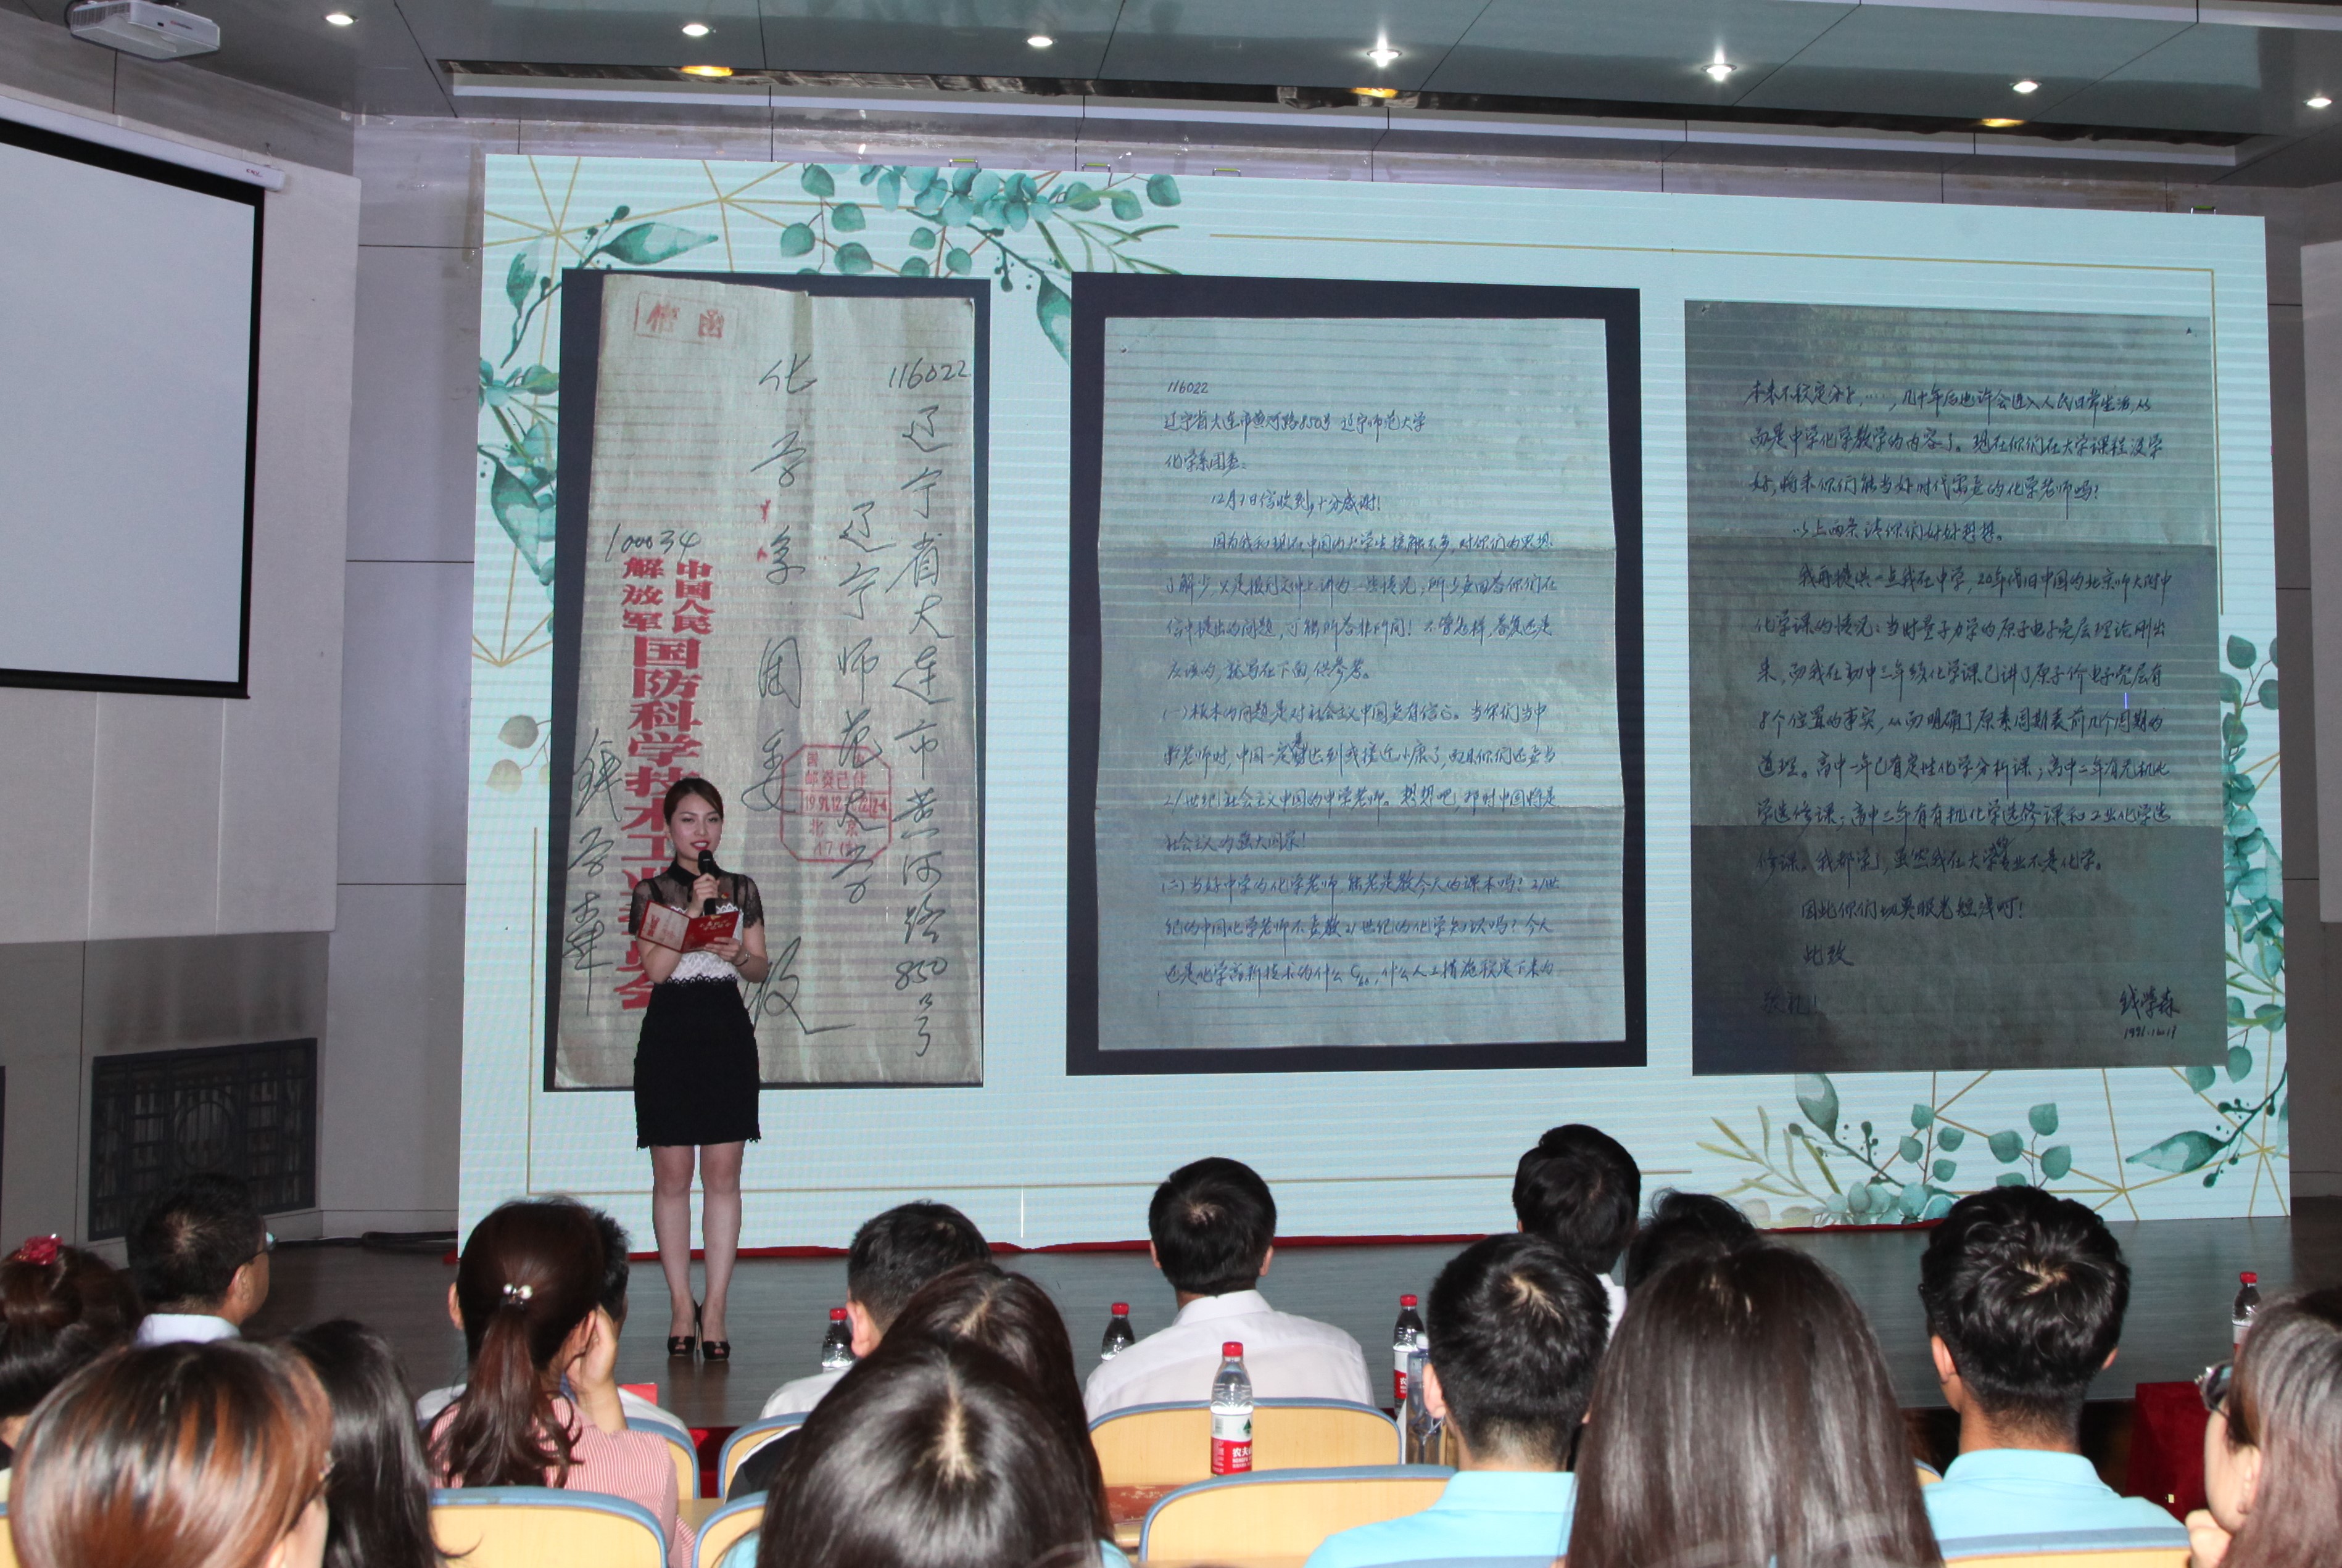 信函
116022
辽宁省大连市黄河路850号
辽宁师范大学
化学系团委
收
100034
中国人民
解放军
国防科学技术工业委员会
钱学森
邮资已付
北京
116022
辽宁省大连市黄河路850号 辽宁师范大学
化学系团委:
12月7日信收到,十分感谢!
因为我和现在中国的大学生接触不多,对你们的思想
了解少,只是报刊文件上讲的一些情况;所以要回答你们在
信中提出的问题,可能所答非所问!不管怎样,答复还是
应该的,就写在下面,供参考。
(一)根本的问题是对社会主义中国要有信心。当你们当中
学老师时,中国一定会达到或接近小康了,而且你们还要当
21世纪社会主义中国的中学老师。想想吧,那时中国将是
社会主义的强大国家!
(二)当好中学的化学老师 能老是教今天的课本吗?21世
纪的中国化学老师不要教21世纪的化学知识吗?今天
还是化学高新技术的什么C60,什么人工措施稳定下来的
本来不稳定分子,……,几十年后也许会进入人民日常生活,从
而是中学化学教学的内容了。现在你们在大学课程没学
好,将来你们能当好时代需要的化学老师吗?
以上两条请你们好好想想。
我再提供一点我在中学,20年代旧中国的北京师大附中
化学课的情况:当时量子力学的原子电子壳层理论刚出
来,而我在初中三年级化学课已讲了原子价电子壳层有
8个位置的事实,从而明确了原素周期表前几个周期的
道理。高中一年已有定性化学分析课;高中二年有无机化
学选修课;高中三年有有机化学选修课和工业化学选
修课。我都学,虽然我在大学专业不是化学。
因此你们切莫眼光短浅呵!
此致
敬礼!
钱学森
农夫